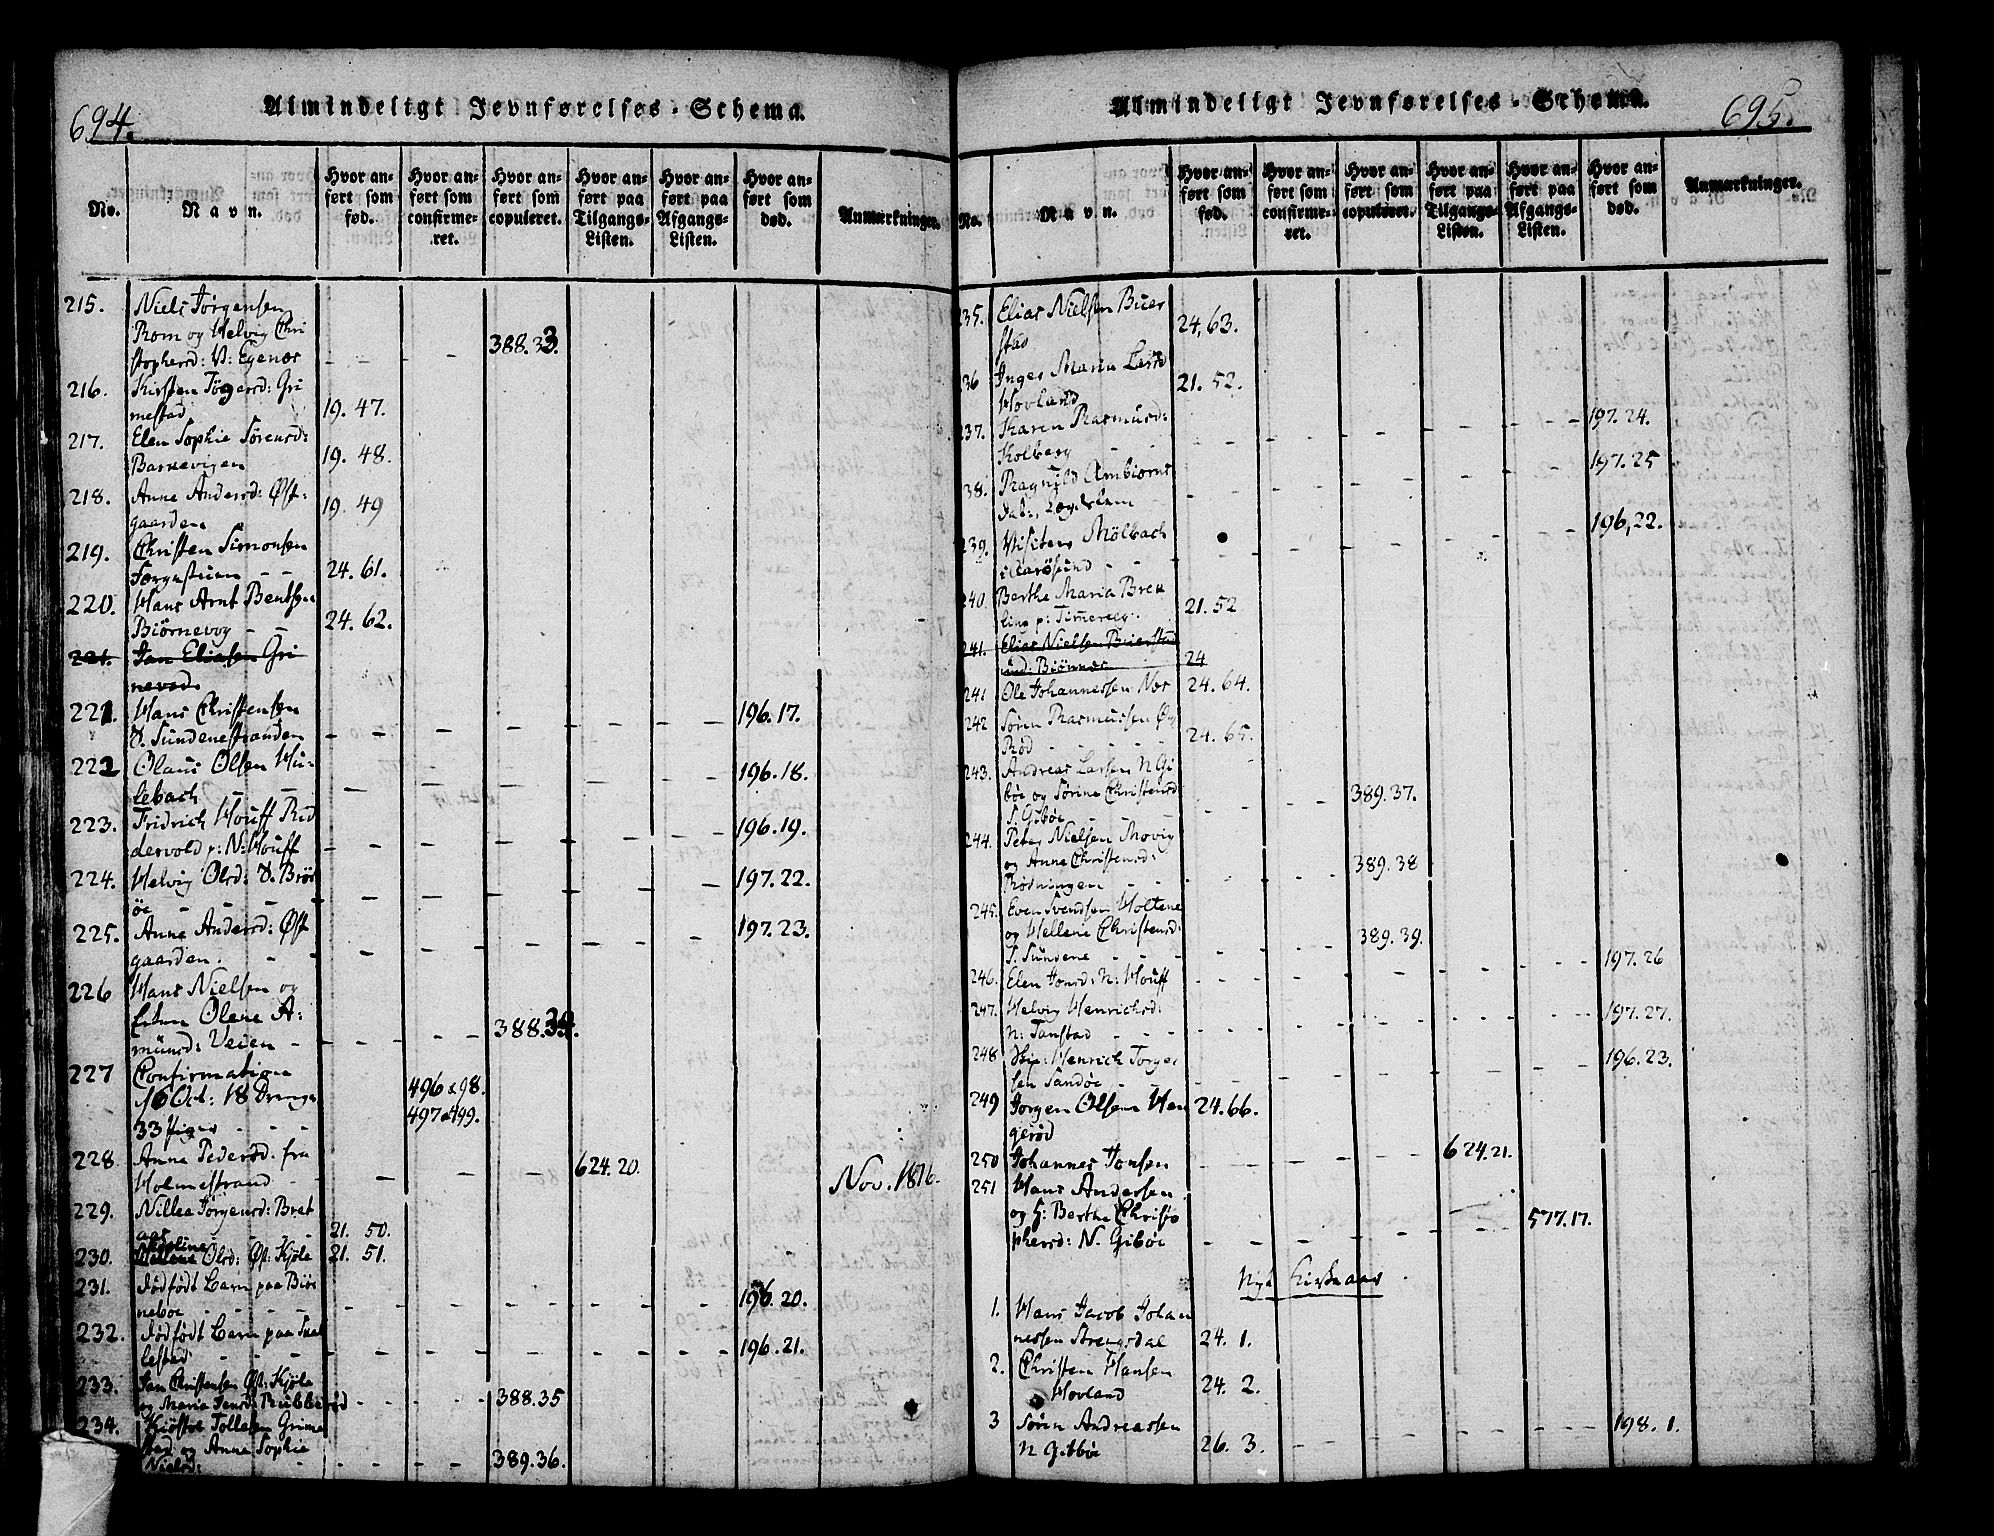 694.
Almindeligt Jevnførelses-Schema.
No.
Navn.
Hvor an-
ført som
fød.
Hvor an-
ført som
confirme-
ret.
Hvor an-
ført som
copuleret.
Hvor an-
ført paa
Tilgangs-
Listen.
Hvor an-
ført paa
Afgangs-
Listen.
Hvor an-
ført som
død.
Anmærkninger.
215. Niels Jørgensen
Rom og Helvig Chri
stophersd: V: Egenæs - - 388.33.
216. Kirsten Tøgersd: Gri
mestad 19. 47.
217. Elen Sophie Sørensd:
Barkevigen 19. 48.
218. Anne Andersd: Øst-
gaarden 19. 49
219. Christen Simonsen
- - 24. 61.
220. Hans Arnt Bentsen
Biørnevog - - 24. 62.
221. Jan Eliasen Gri
nevad.
221. Hans Christensen
Ø. Sundenestranden 196.17.
222 Olaus Olsen Hu-
lebach 196.18.
223. Fridrich Houff Rid
dervold p: N: Houff 196.19.
224. Helvig Olsd: Ø. Brøt
øe - - 197.22.
225. Anne Andersd: Øst
gaarden. - - 197.23.
226 Hans Nielsen og
Olene A-
mundsd: Veien - 388.34.
227 Confirmation
16 Oct: 18 Drenge 496 & 98.
33 Piger - - - 497 & 499.
228 Anne Pedersd: fra
Holmestrand - 624.20. Nov. 1816.
229. Nillea Jørgensd: Bret
aas - - - 21. 50.
230. Olsd: Øst: Kjøle 21. 51.
231. dødfødt Barn paa Biør
neboe - - - 196. 20.
232. dødfødt Barn paa
lestad - - 196. 21.
233. Jan Christensen Øst: Kjøle
og Maria Jensd: Rubberød - - 388.35
234. Kiøstol Tollefsen Grime
stad og Anne Sophie
Nielsd: - - 389.36.
695.
Almindeligt Jevnførelses-Schema.
No.
Navn.
Hvor an-
ført som
fød.
Hvor an-
ført som
confirme-
ret.
Hvor an-
ført som
copuleret.
Hvor an-
ført paa
Tilgangs-
Listen.
Hvor an-
ført paa
Afgangs-
Listen.
Hvor an-
ført som
død.
Anmærkninger.
235. Elias Nielsen Buer
stad 24, 63.
236 Inger Maria Larsd
Hovland 21. 52.
237. Karen Rasmusd:
Kolberg - - 197. 24.
238. Ragnild Ambiørns
dat:, - - 197. 25
239. Mølbach
i - - 196, 22.
240. Berthe Maria Brek
p: 21. 52
241. Elias Nielsen Buerstad
und: Biønnes 24
241 Ole Johannessen Nes 24. 64.
242 Søren Rasmussen
Rød - - - 24. 65.
243. Andreas Larsen N Gi
bøe og Sørine Christensd
S. Gibøe - - 389.37.
244. Peter Nielsen Movig
og Anne Christensd:
Rødningen - - 389.38
245. Even Svendsen Holtene
og Hellene Christensd:
S. Sundene - - 389. 39.
246. Elen Jonsd: N: Houff - - 197. 26
247. Helvig Henrichsd:
N: Tanstad - - 197. 27.
248 Henrich Torger
sen Sandøe - - 196. 23.
249 Jørgen Olsen Hen
gerød 24. 66.
250 Johannes Jonsen - - 624. 21.
251 Hans Andersen
og H: Berthe Christo
phersd: N. Gibøe - - 577.17.
Nyt Kirkeaar
1. Hans Jacob Johan
nessen Strengsdal 24. 1.
2. Christen Hansen
Hovland 24. 2.
3 Søren Andreassen
N Gibbøe 26. 3. - - 198. 1.